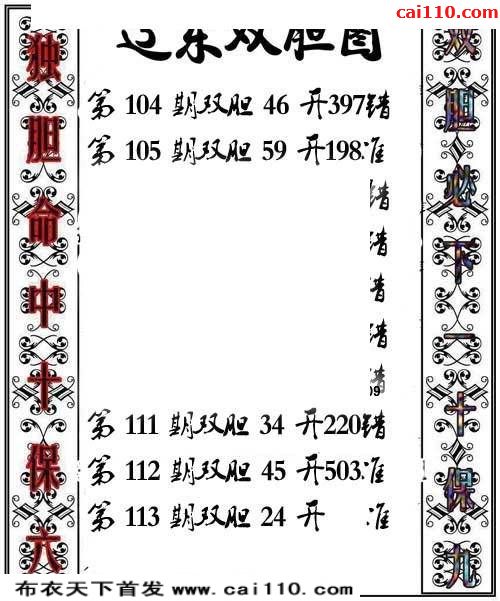 cai110.com
辽东双胆图
独胆命中十保六
第 104 期双胆 46 开397错
第 105 期双胆 59 开198准
错
错
错
错
错
第 111 期双胆 34 开220错
第 112 期双胆 45 开503准
第 113 期双胆 24 开 准
双胆必下一十保九
布衣天下首发 www.cai110.com